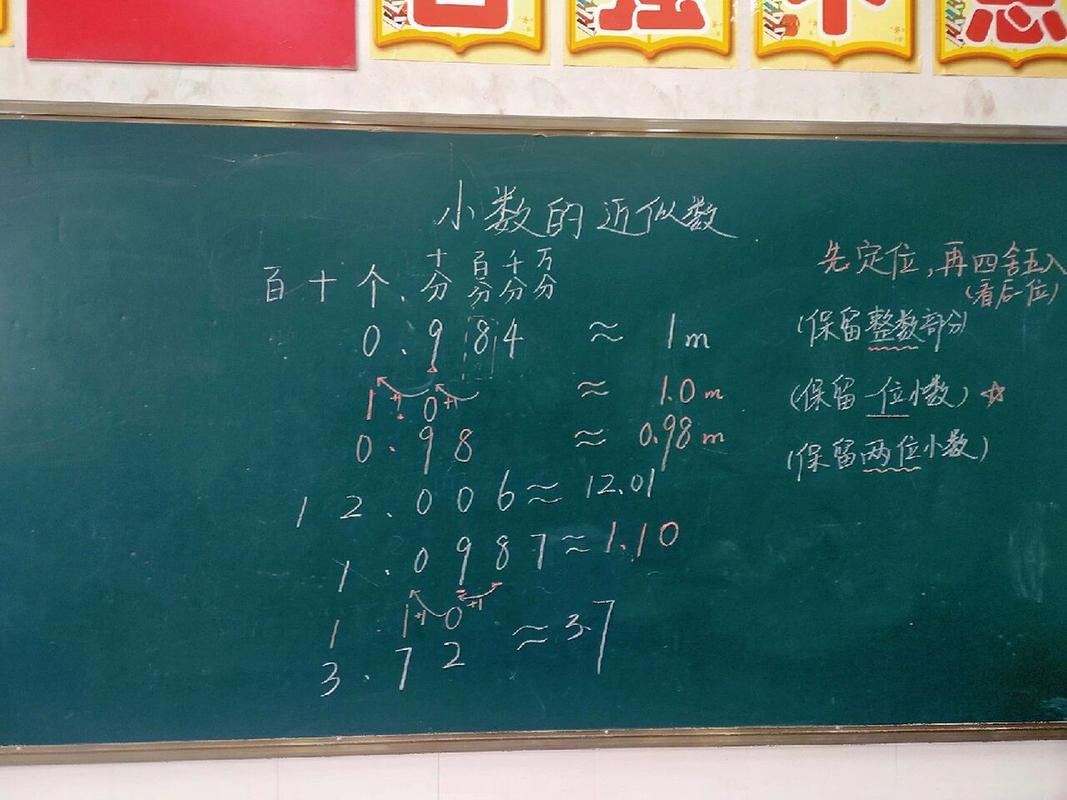 自强不息
小数的近似数
百 十 个 . 十分 百分 千分 万分
先定位，再四舍五入
(看后一位)
0.984 ≈ 1m (保留整数部分)
1.0 ≈ 1.0m (保留一位小数) ☆
+1 +1
0.98 ≈ 0.98m (保留两位小数)
12.006 ≈ 12.01
1.0987 ≈ 1.10
1 . 1 0
+1 +1
3.72 ≈ 3.7